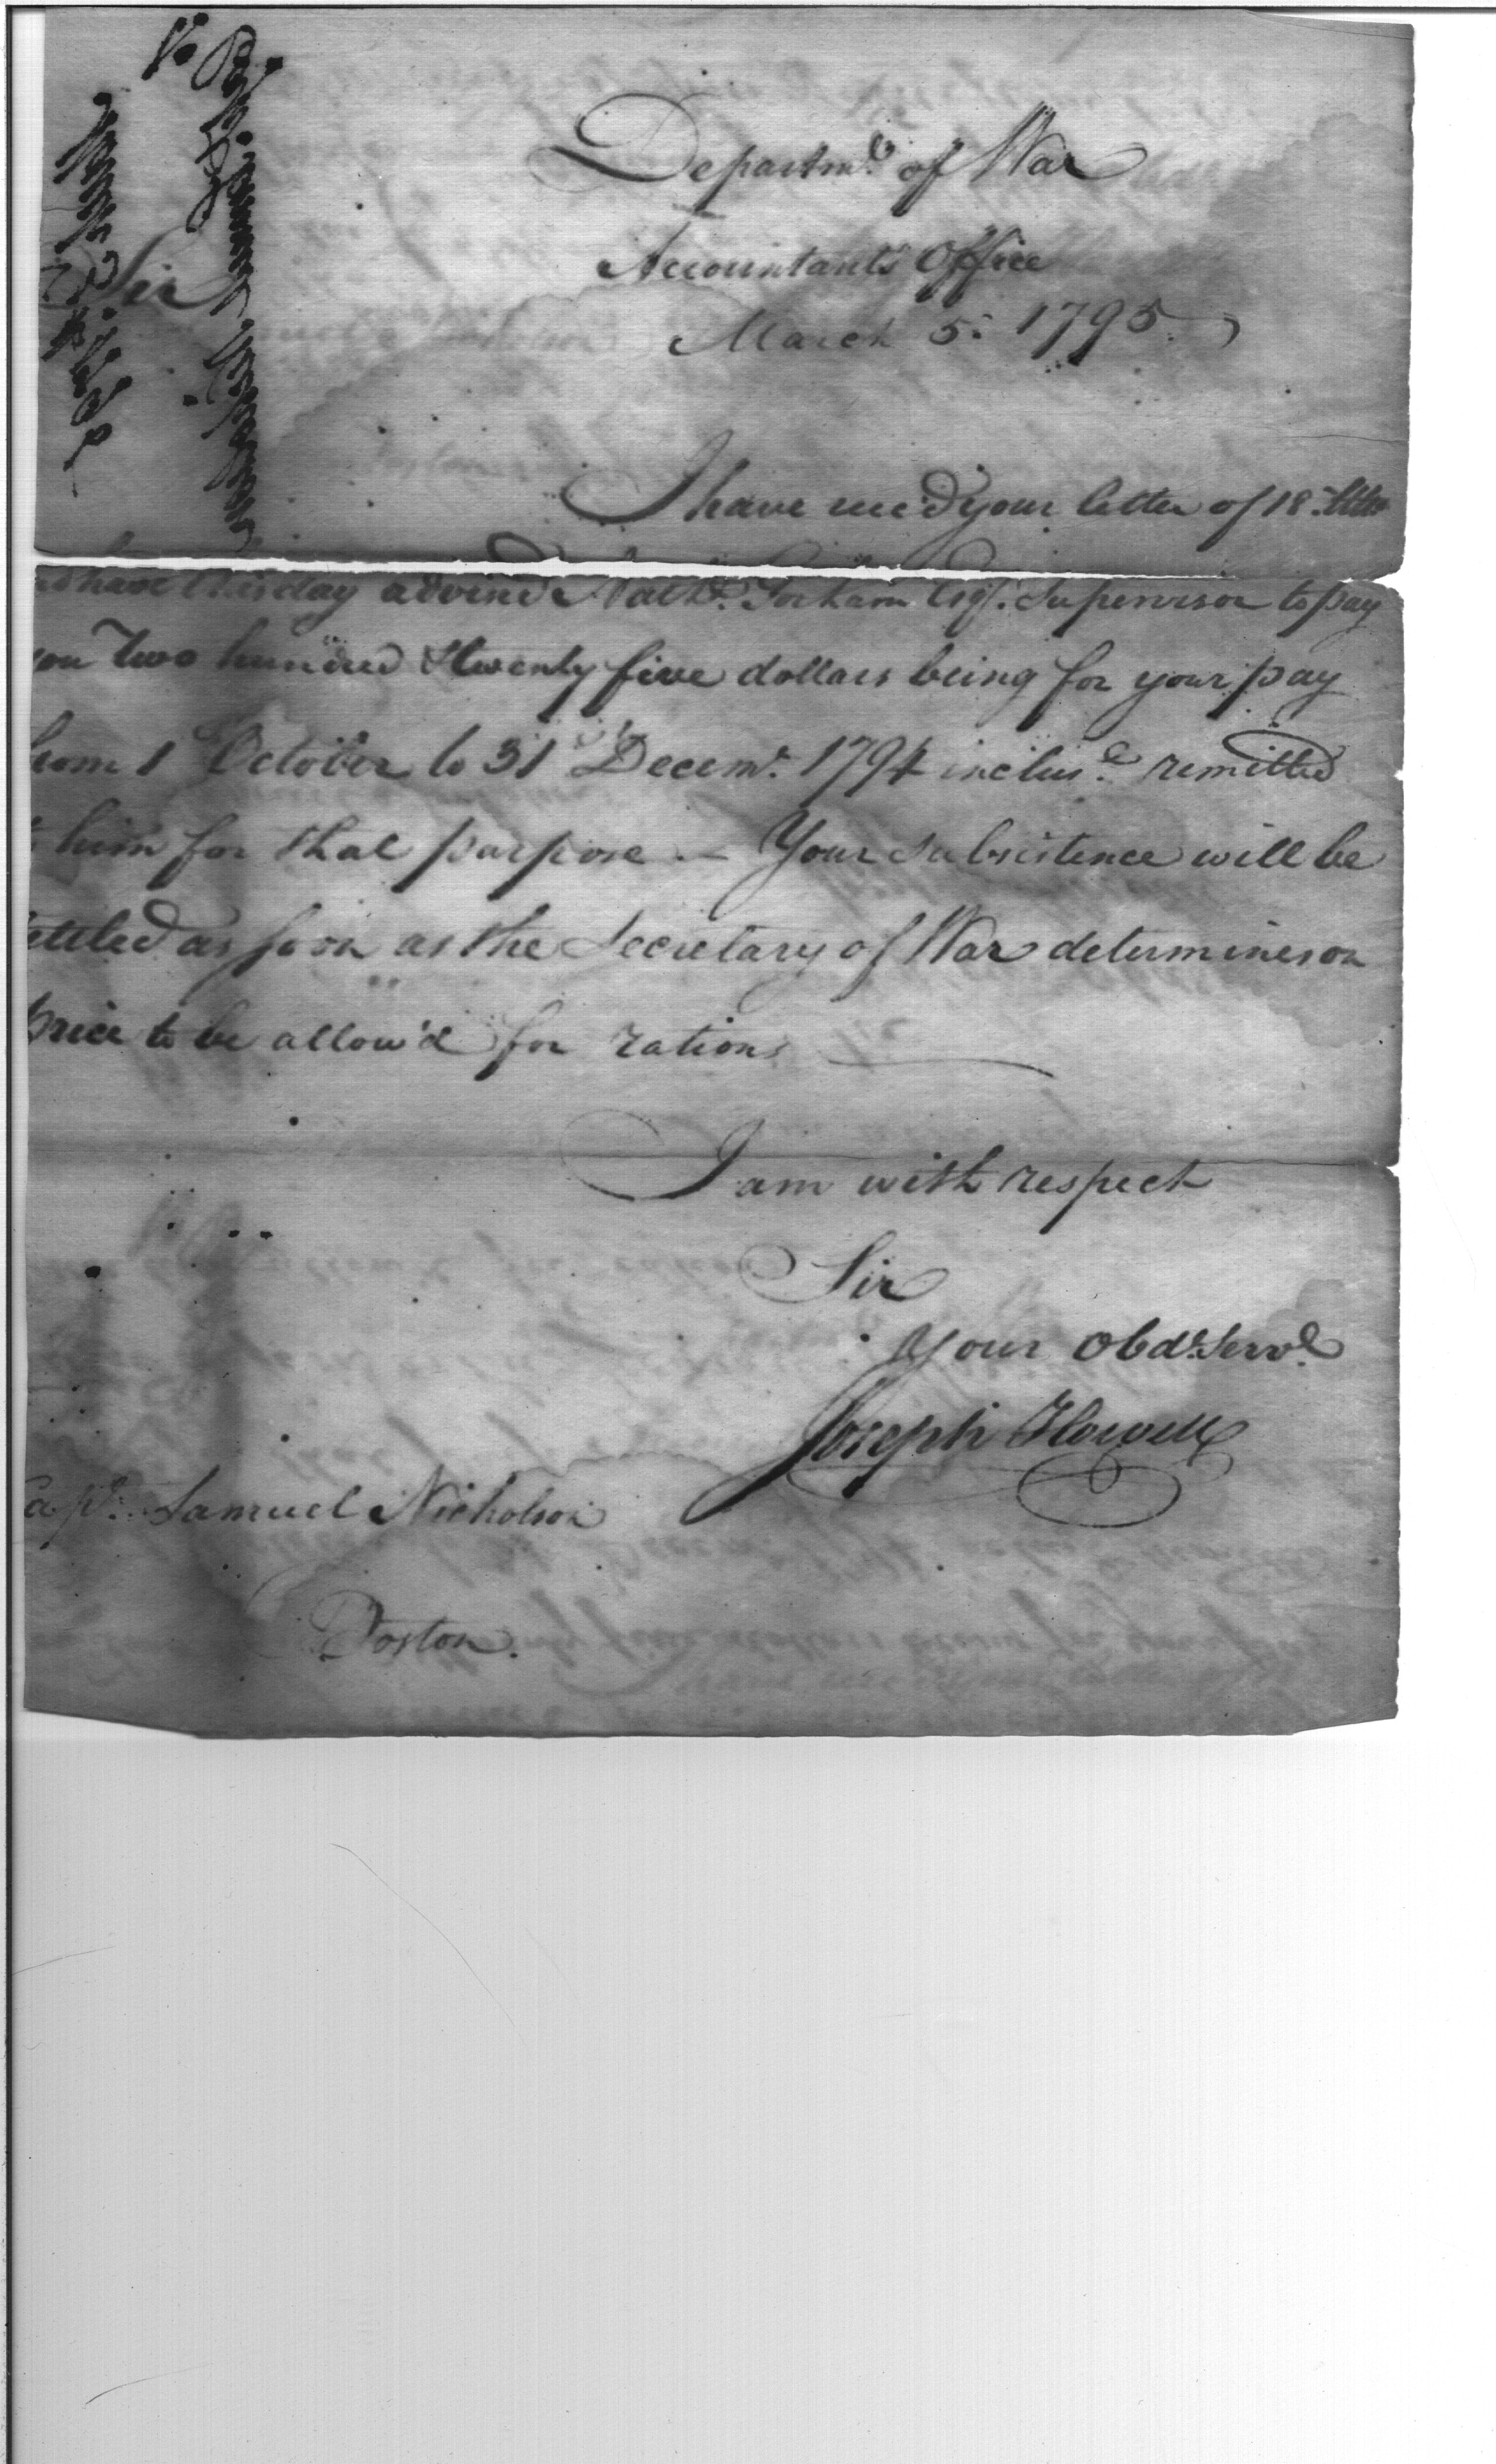 Departmt. of War
Accountants Office
March 5: 1795.
Sir
I have recd your letter of 18th Ulto
have this day advised Nathl. Gorham Esqr. Supervisor to pay
you two hundred & twenty five dollars being for your pay
from 1 October to 31 Decemr. 1794 inclusve remitted
him for that purpose — Your subsistence will be
settled as soon as the Secretary of War determines on
price to be allow'd for rations
I am with respect
Sir
Your Obdt. Servt.
Joseph Howell
Capt. Samuel Nicholson
Boston.